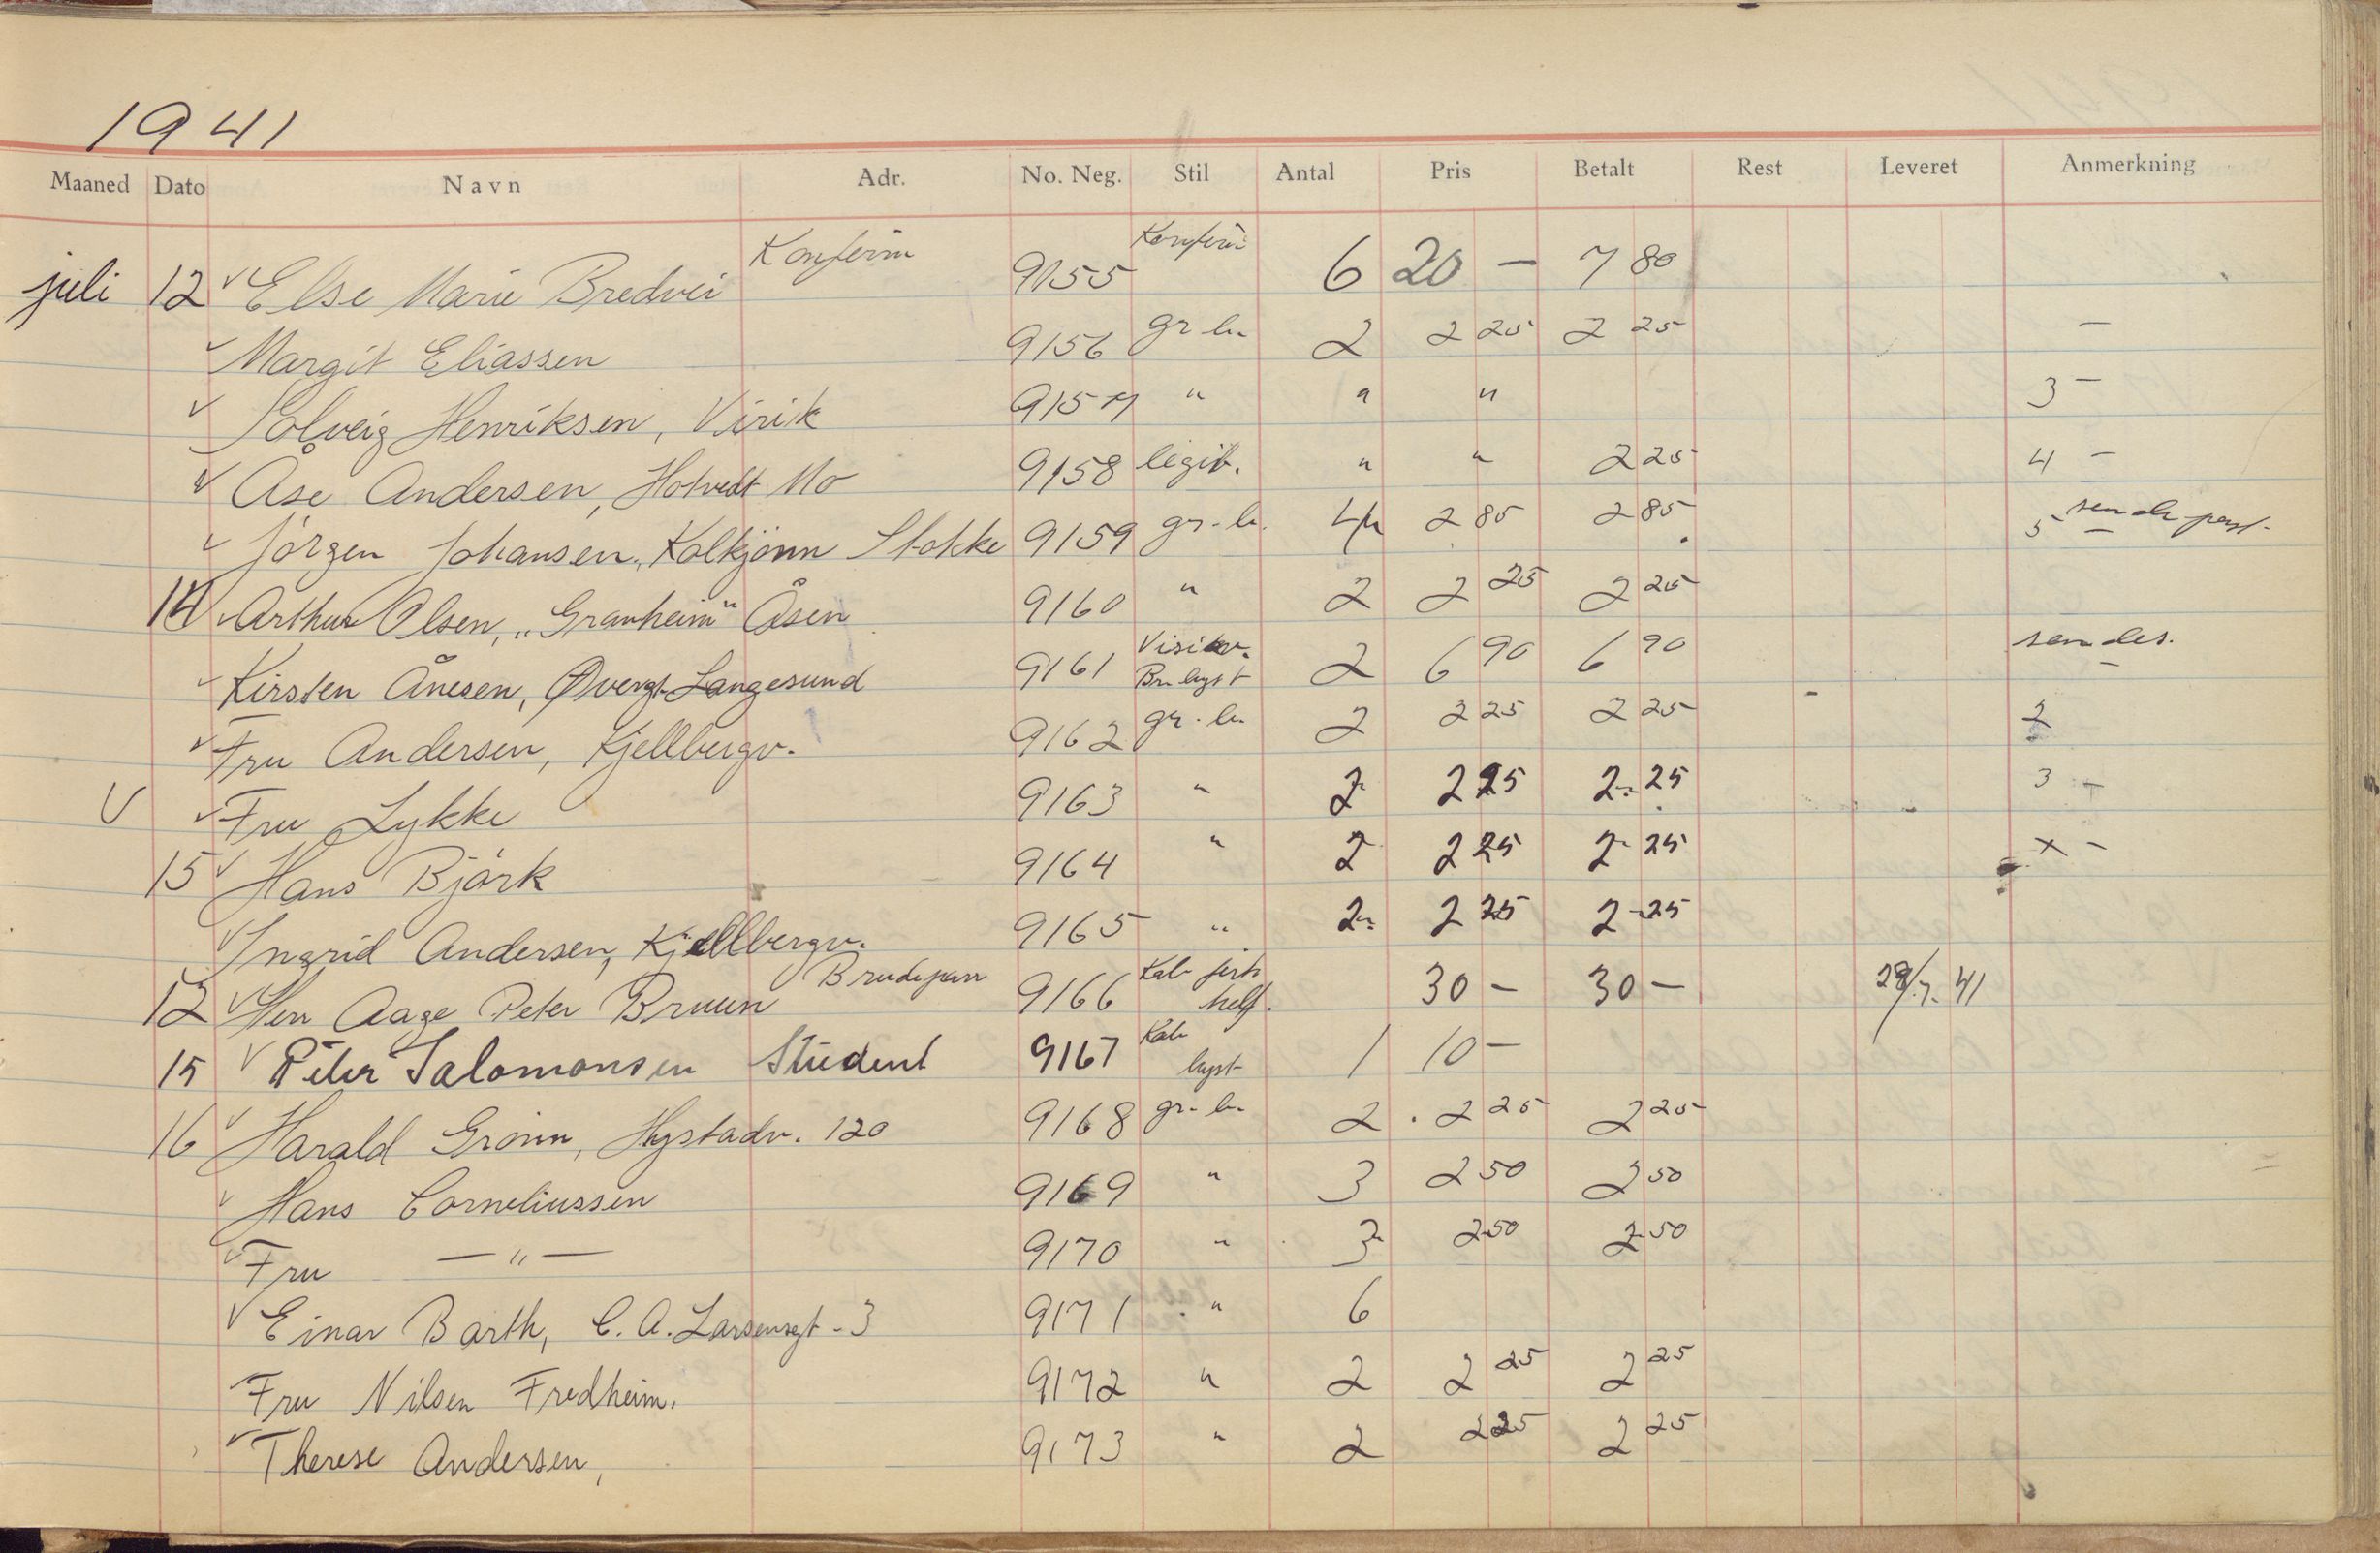 1941
Maaned Dato Navn Adr. No. Neg. Stil Antal Pris Betalt Rest Leveret Anmerkning
juli 12 Else Marie Bredvei Konfirm 9155 Konfirm 6 20 — 7 80
Margit Eliassen 9156 gr. b. 2 2 25 2 25 —
Solveig Henriksen, Virik 9157 " " " 3 —
Åse Andersen, Hotvedt Mo 9158 legit. " " 2 25 4 —
Jörgen Johansen, Kolkjønn Stokke 9159 gr. b. 4 2 85 2 85 5 — sendes post.
14 Arthur Olsen, "Granheim" Åsen 9160 " 2 2 25 2 25
Kirsten Ånesen, Øvergt. Langesund 9161 2 6 90 6 90 sendes. —
Fru Andersen, Kjellbergv. 9162 gr. b. 2 2 25 2 25 2
Fru Lykke 9163 " 2 2 25 2 25 3 —
15 Hans Björk 9164 " 2 2 25 2 25 x —
Ingrid Andersen, Kjellbergv. 9165 " 2 2 25 2 25
12 Herr Aage Peter Bruun Brudepar 9166 Kab. 30 — 30 — 29/7. 41
15 Peter Salomonsen Student 9167 Kab. byst 1 10 —
16 Harald Grönn, Hystadv. 120 9168 gr. b. 2 2 25 2 25
Hans Corneliussen 9169 " 3 2 50 2 50
Fru — " — 9170 " 3 2 50 2 50
Einar Barth, C. A. Larsensgt. 3 9171 " 6
Fru Nilsen Fredheim. 9172 " 2 2 25 2 25
Therese Andersen, 9173 " 2 2 25 2 25